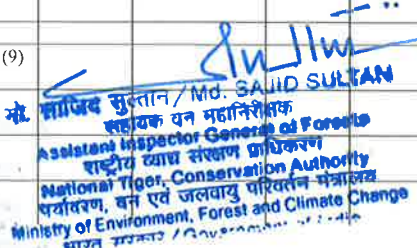 (9)
मो. साजिद सुल्तान / Md. SAJID SULTAN
सहायक वन महानिरीक्षक
Assistant Inspector General of Forests
राष्ट्रीय व्याघ्र संरक्षण प्राधिकरण
National Tiger Conservation Authority
पर्यावरण, वन एवं जलवायु परिवर्तन मंत्रालय
Ministry of Environment, Forest and Climate Change
भारत सरकार / Government of India